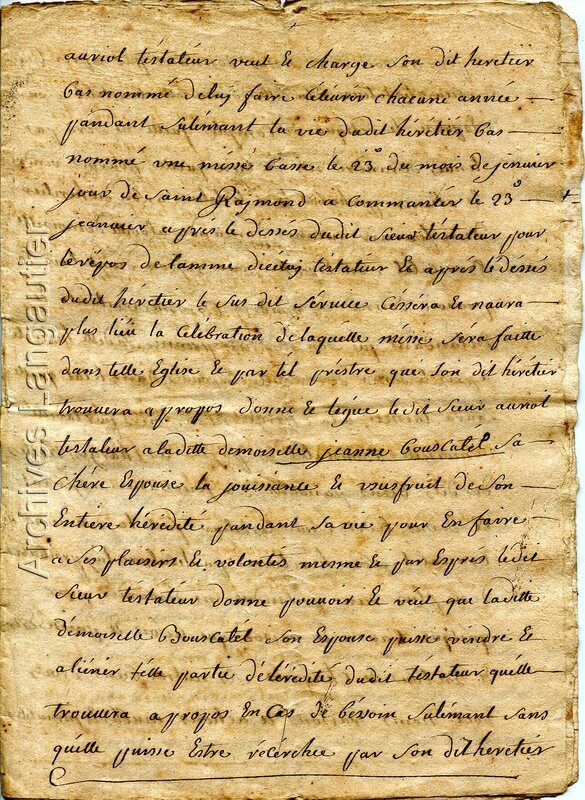 auriol téstatéur veut Et charge son dit heretiér
bas nommé de luy faire Célébrér chacune année
pandant sulémant la vie dudit hérétiér bas
nommé une missé basse le 23e du mois de jenuiér
jour de saint Raymond a commantér le 23e
jeanuiér a prés le dessés dudit sieur téstatéur pour
le répos de lamme dicéluy téstatéur Et a prés lé déssés
dudit hérétiér le sus dit sérvice césséra Et naura
plus liéu la Célébration dé laquélle missé séra faitte
dans télle Eglise Et par tél préstre que son dit hérétiér
trouuéra a propos donne Et légue le dit sieur auriol
téstatéur a laditte démoisélle jeanne Bouscatél sa
chére Espouse la jouissance Et usufruit de son
Entiére hérédité pandant sa vie pour En faire
a sés plaisirs Et volontés mesme Et par Esprés lé dit
sieur téstatéur donne pouvoir Et véut que laditte
démoisélle Bouscatél son Espouse puisse véndre Et
aliénér télle partie dé lérédité dudit téstatéur quélle
trouuéra a propos En Cas dé bésoin sulémant sans
quélle puisse Estre récérchée par son dit heretiér
Archives Langautier